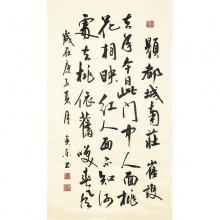 題都城南莊 崔護
去年今日此門中人面桃
花相映紅人面不知何
處去桃花依舊咲春風
歲在庚子夏月